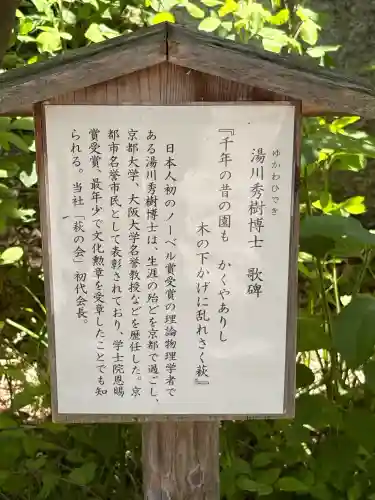 湯川秀樹博士　歌碑
ゆかわひでき
『千年の昔の園も　かくやありし
木の下かげに乱れさく萩』
日本人初のノーベル賞受賞の理論物理学者で
ある湯川秀樹博士は、生涯の殆どを京都で過ごし、
京都大学、大阪大学名誉教授などを歴任した。京
都市名誉市民として表彰されており、学士院恩賜
賞受賞、最年少で文化勲章を受章したことでも知
られる。当社「萩の会」初代会長。